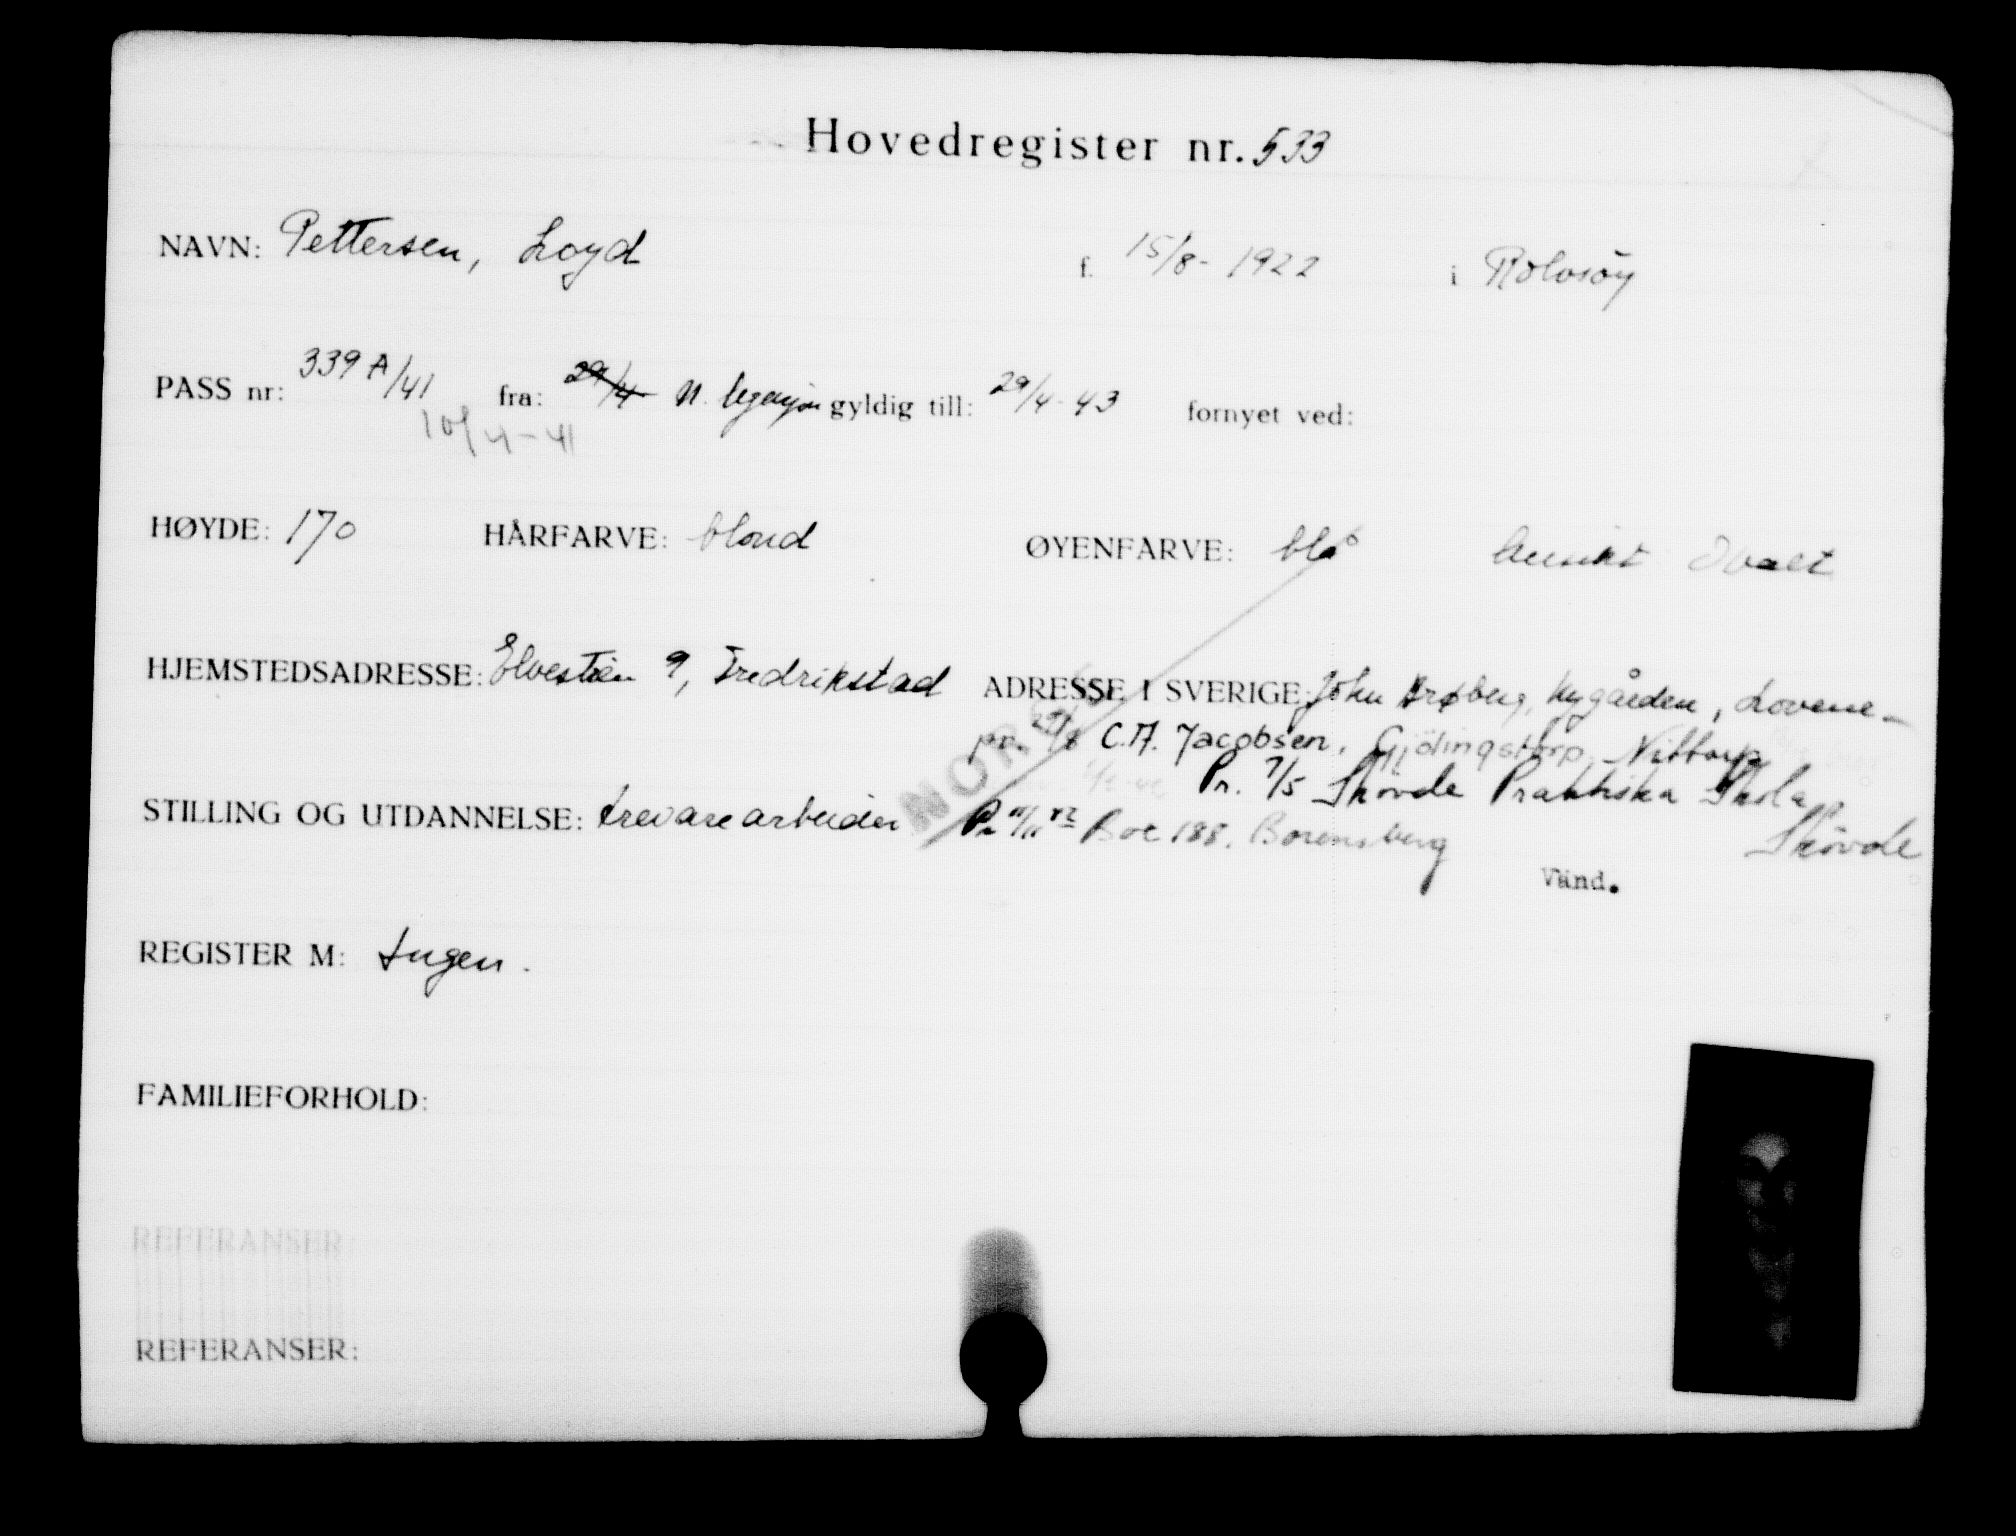 Hovedregister nr. 533
NAVN: Pettersen, Loyd f. 15/8 - 1922 i Rolvsöy
PASS nr: 339 A/41 fra: 29/4 N. legasjon gyldig till: 29/4 - 43 fornyet ved:
10/4 - 41
HØYDE: 170 HÅRFARVE: blond ØYENFARVE: blå Ansikt Ovalt
HJEMSTEDSADRESSE: Elvestien 9, Fredrikstad ADRESSE I SVERIGE: John Brøberg, Nygården, Lovene
pr. 29/8 C.A. Jacobsen, Gjölingstorp, Nittorp
Pr. 7/5 Skövde Praktiska Skola,
Skövde
NORGE
STILLING OG UTDANNELSE: trevarearbeider Pr 11/11 42 Box 188, Borensberg
Vänd.
REGISTER M: Ingen.
FAMILIEFORHOLD:
REFERANSER:
REFERANSER: